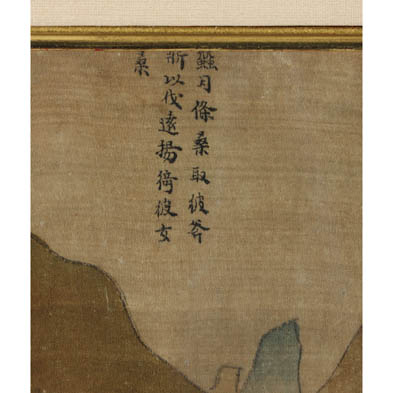 蠶月條桑取彼斧
斨以伐遠揚猗彼女
桑